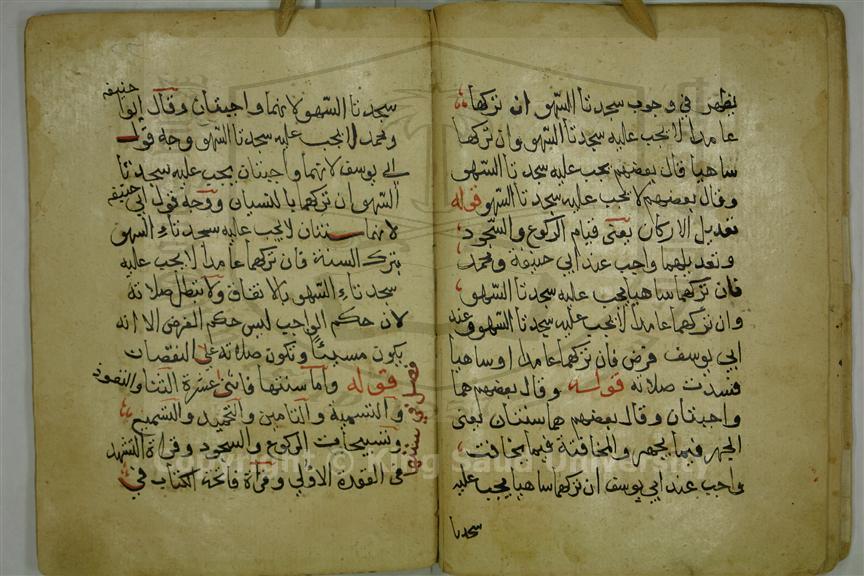 يظهر في وجوب سجدتا السهو ان تركها
عامدا لا يجب عليه سجدتا السهو وان تركها
ساهيا قال بعضهم يجب عليه سجدتا السهو
وقال بعضهم لا يجب عليه سجدتا السهو قوله
تعديل الاركان يعنى قيام الركوع والسجود
وتعديلهما واجب عند ابي حنيفة ومحمد
فان تركهما ساهيا يجب عليه سجدتا السهو
وان تركهما عامدا لا يجب عليه سجدتا السهو وعند
ابي يوسف فرض فان تركهما عامدا او ساهيا
فسدت صلاته قوله وقال بعضهم هما
واجبتان وقال بعضهم هما سنتان يعنى
الجهر فيما يجهر والمخافتة فيما يخافت
واجب عند ابي يوسف ان تركهما ساهيا يجب عليه
سجدتا
سجدتا السهو لانهما واجبتان وقال ابو حنيفه
ومحمد لا يجب عليه سجدتا السهو وجه قول
ابي يوسف لانهما واجبتان يجب عليه سجدتا
السهو ان تركهما بالنسيان ووجه قول ابي حنيفه
لانهما سنتان لا يجب عليه سجدتاء السهو
بترك السنة فان تركهما عامدا لا يجب عليه
سجدتاء السهو بالاتفاق ولا تبطل صلاته
لان حكم الواجب ليس حكم الفرض الا انه
يكون مسيئا وتكون صلاته على النقصان
قوله واما سننها فاثنى عشرة الثنا والتعوذ
والتسمية والتامين والتحميد والتسميع
وتسبيحات الركوع والسجود وقراة التشهد
فى القعدة الاولي وقراة فاتحة الكتاب في
فصل في سننها
Copyright © King Saud University